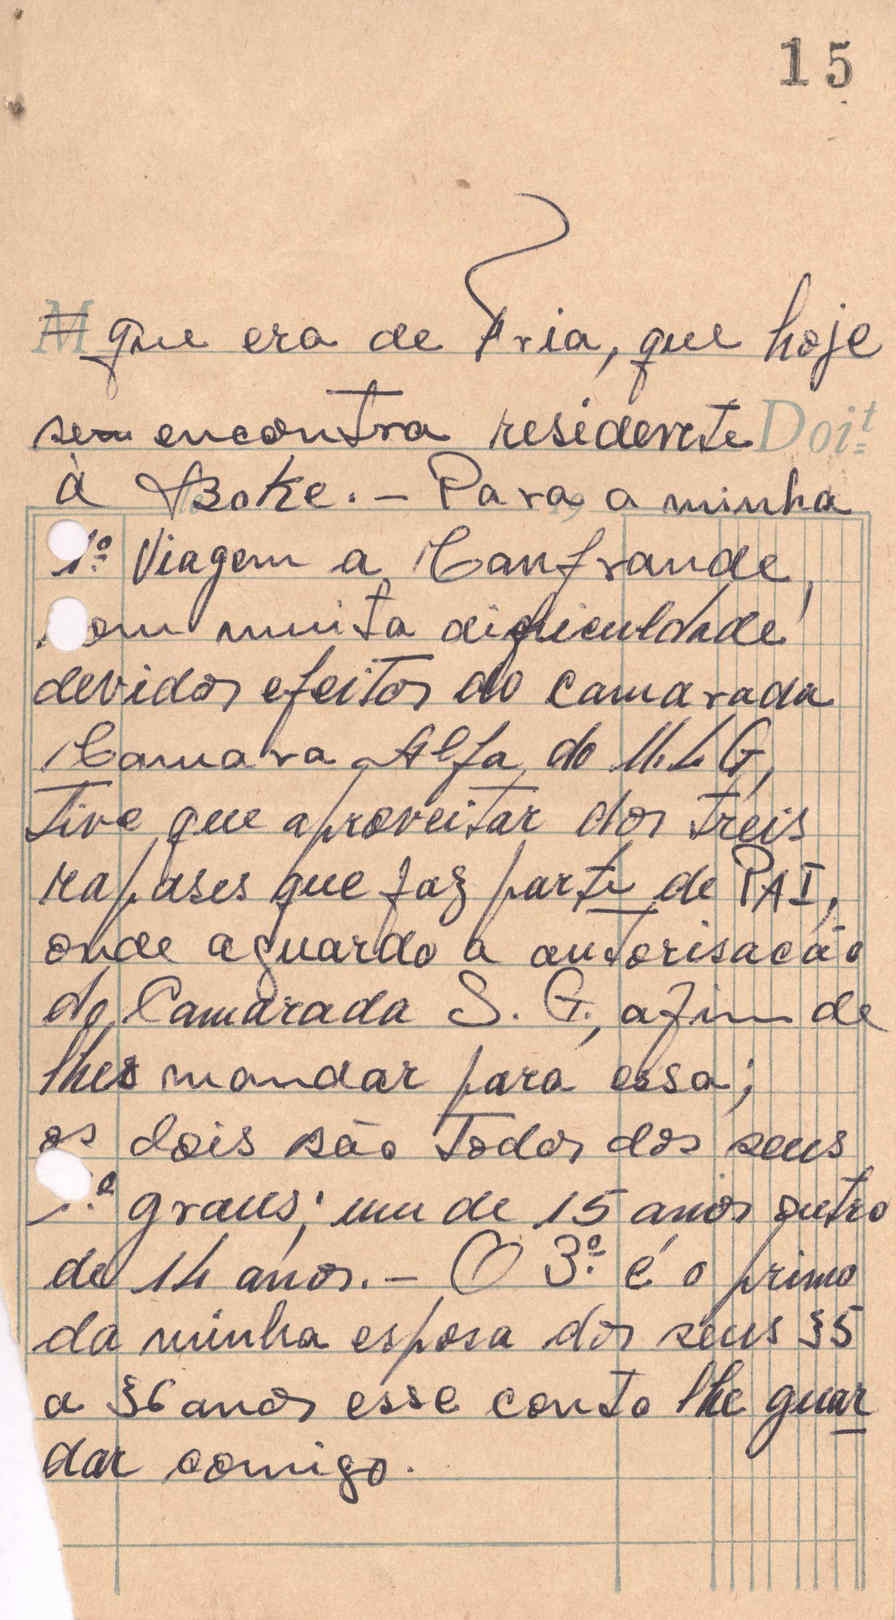 15
que era de Fria, que hoje
se encontra residente
Doit
à Boke. - Para a minha
1º Viagem a Canfrande,
com muita dificuldade
devidos efeitos do camarada
Camara Alfa do M.L.G,
Tive que aproveitar dos treis
rapases que faz parte de PAI,
onde aguardo a autorisacão
do Camarada S. G., afim de
lhes mandar para essa;
os dois são Todos dos seus
1.º graus; um de 15 anos outro
de 14 anos. - O 3º é o primo
da minha esposa dos seus 35
a 36 anos esse conto lhe guar
dar comigo.